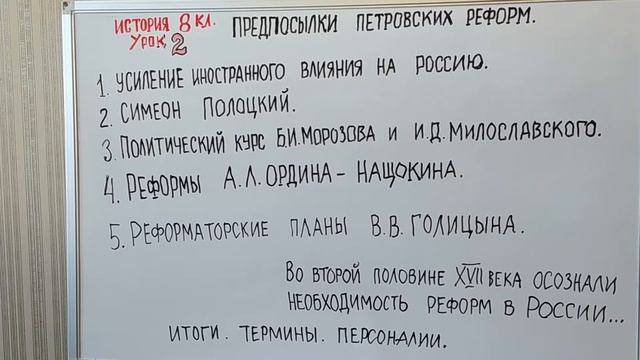 ИСТОРИЯ 8 КЛ. ПРЕДПОСЫЛКИ ПЕТРОВСКИХ РЕФОРМ.
УРОК 2
1. УСИЛЕНИЕ ИНОСТРАННОГО ВЛИЯНИЯ НА РОССИЮ.
2. СИМЕОН ПОЛОЦКИЙ.
3. ПОЛИТИЧЕСКИЙ КУРС Б.И. МОРОЗОВА И И.Д. МИЛОСЛАВСКОГО.
4. РЕФОРМЫ А.Л. ОРДИНА-НАЩОКИНА.
5. РЕФОРМАТОРСКИЕ ПЛАНЫ В.В. ГОЛИЦЫНА.
ВО ВТОРОЙ ПОЛОВИНЕ XVII ВЕКА ОСОЗНАЛИ
НЕОБХОДИМОСТЬ РЕФОРМ В РОССИИ...
ИТОГИ. ТЕРМИНЫ. ПЕРСОНАЛИИ.